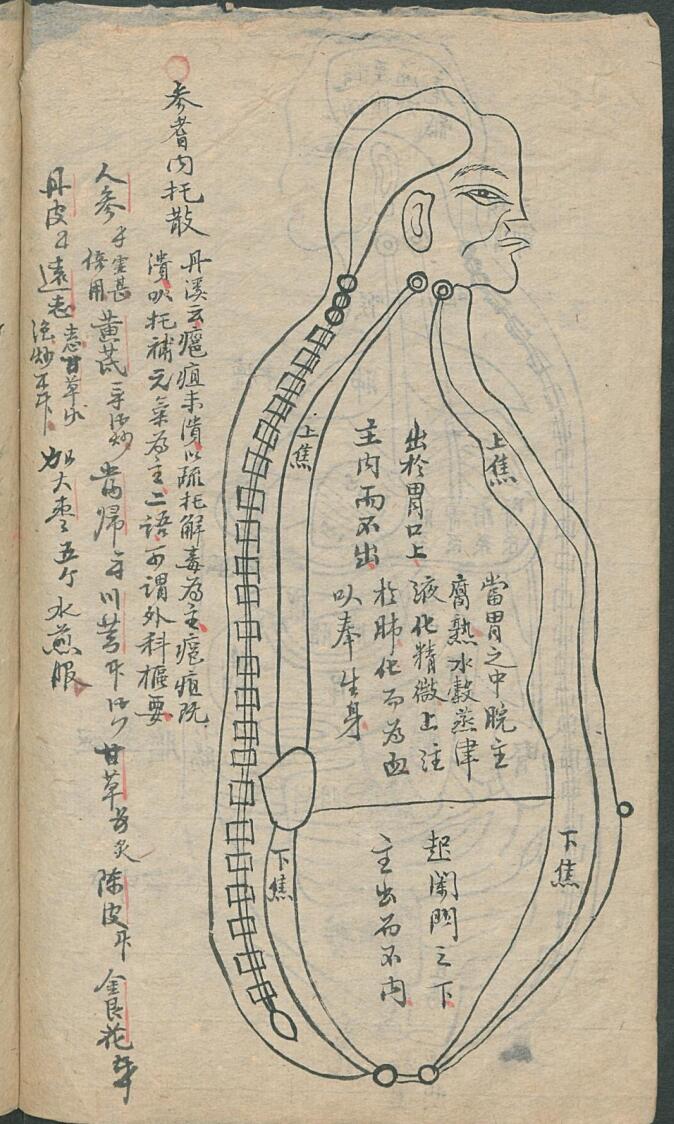 上焦
出於胃口上
主内而不出
當胃之中脘主
腐熟水穀蒸津
液化精微上注
於肺化而為血
以奉生身
下焦
起闌門之下
主出而不内
上焦
下焦
参耆内托散
丹溪云癰疽未潰以疏托解毒為主癰疽既
潰以托補元氣為主二語可謂外科樞要
人参 黄芪 當歸 川芎 甘草 陳皮 金艮花
丹皮 遠志 甘草 加大枣五个水煎服